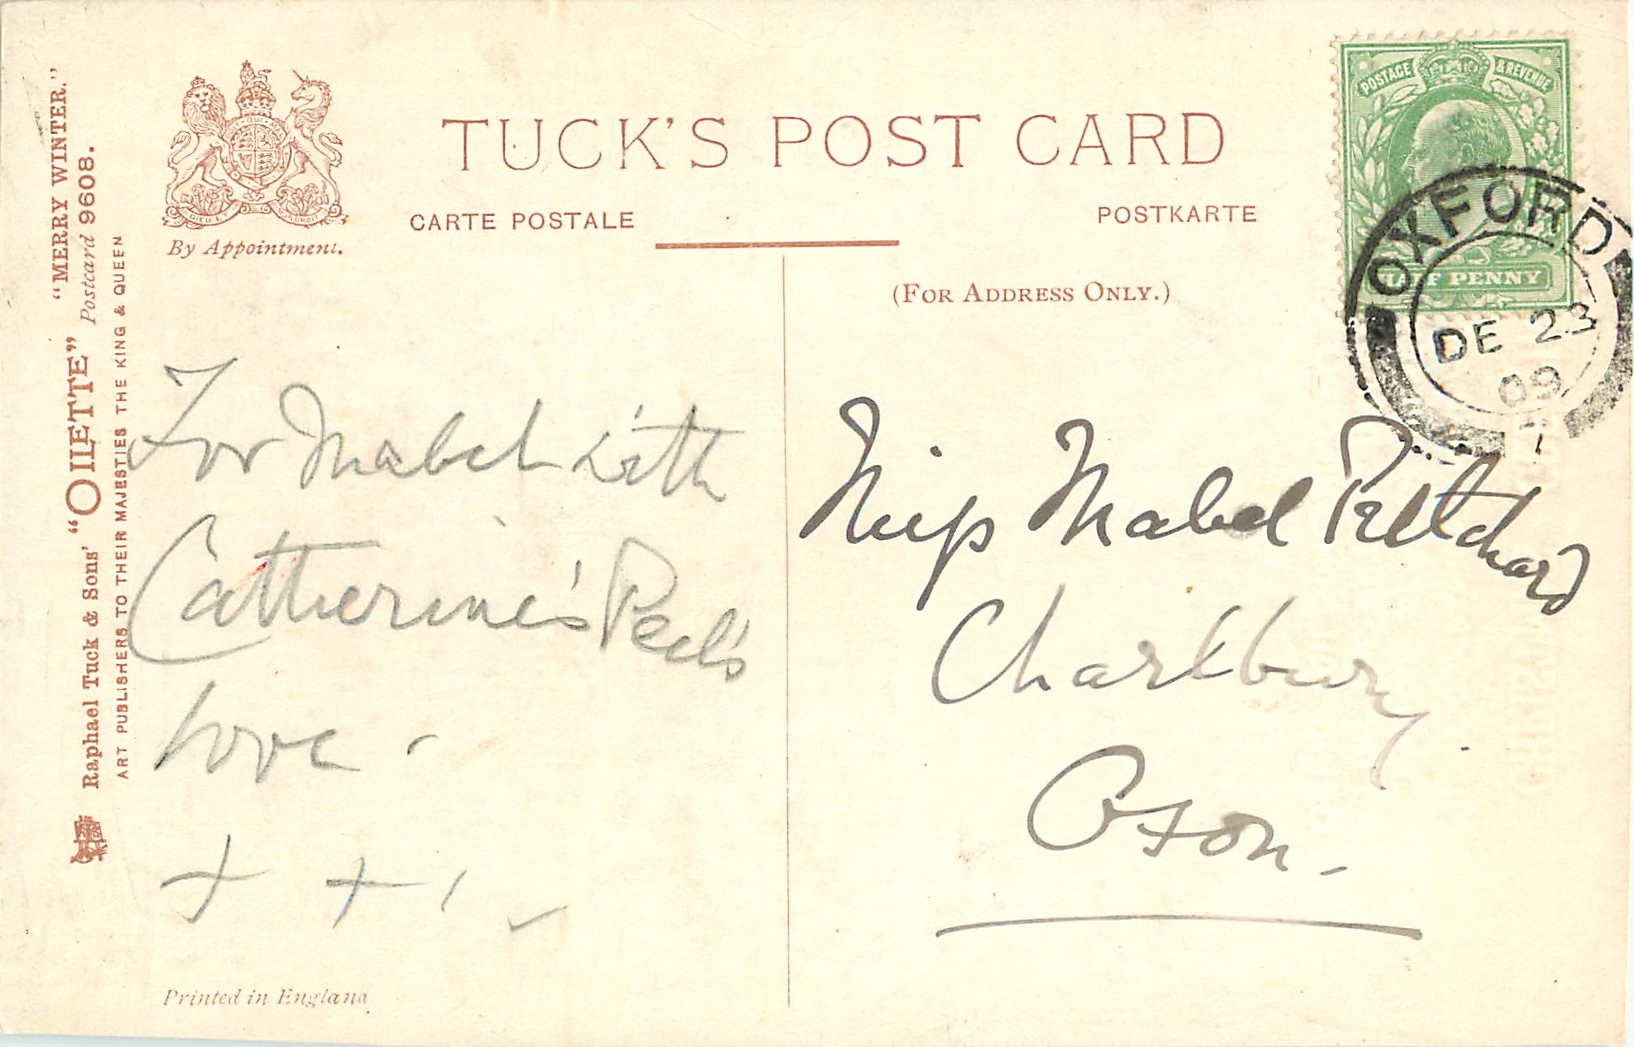 "MERRY WINTER."
Postcard 9608.
Raphael Tuck & Sons' "OILETTE"
ART PUBLISHERS TO THEIR MAJESTIES THE KING & QUEEN
By Appointment.
TUCK'S POST CARD
CARTE POSTALE
POSTKARTE
(FOR ADDRESS ONLY.)
POSTAGE & REVENUE
HALF PENNY
OXFORD
DE 23
09
For Mabel with
Catherine's Peel's
love -
+ +
Miss Mabel
Charlbury
Oxon.
Printed in England